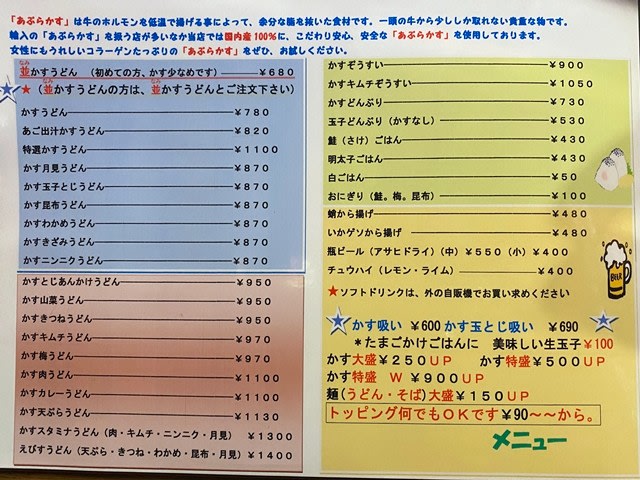 「あぶらかす」は牛のホルモンを低温で揚げる事によって、余分な脂を抜いた食材です。一頭の牛から少ししか取れない貴重な物です。
輸入の「あぶらかす」を扱う店が多いなか当店では国内産100%に、こだわり安心、安全な「あぶらかす」を使用しております。
女性にもうれしいコラーゲンたっぷりの「あぶらかす」をぜひ、お試しください。
なみ
並かすうどん (初めての方、かす少なめです) ¥680
なみ なみ
★(並かすうどんの方は、並かすうどんとご注文下さい)
かすうどん ¥780
あご出汁かすうどん ¥820
特選かすうどん ¥1100
かす月見うどん ¥870
かす玉子とじうどん ¥870
かす昆布うどん ¥870
かすわかめうどん ¥870
かすきざみうどん ¥870
かすニンニクうどん ¥870
かすとじあんかけうどん ¥950
かす山菜うどん ¥950
かすきつねうどん ¥950
かすキムチうどん ¥970
かす梅うどん ¥970
かす肉うどん ¥1100
かすカレーうどん ¥1100
かす天ぷらうどん ¥1130
かすスタミナうどん(肉・キムチ・ニンニク・月見) ¥1300
えびすうどん(天ぷら・きつね・わかめ・昆布・月見) ¥1400
かすぞうすい ¥900
かすキムチぞうすい ¥1050
かすどんぶり ¥730
玉子どんぶり(かすなし) ¥530
鮭(さけ)ごはん ¥430
明太子ごはん ¥430
白ごはん ¥50
おにぎり(鮭。梅。昆布) ¥100
蛸から揚げ ¥480
いかゲソから揚げ ¥480
瓶ビール(アサヒドライ)(中)¥550(小)¥400
チュウハイ(レモン・ライム) ¥400
★ソフトドリンクは、外の自販機でお買い求めください
BEER
かす吸い ¥600 かす玉とじ吸い ¥690
*たまごかけごはんに 美味しい生玉子¥100
かす大盛¥250UP かす特盛¥500UP
かす特盛 W ¥900UP
麺(うどん・そば)大盛¥150UP
トッピング何でもOKです¥90~~から。
メニュー